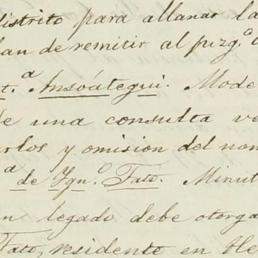 distrito para allanar la
dan de remitir al juzg.º
t.ª Ansoátegui. Mode
e una consulta ve
arlos y omision del nom
ª de Ygn.º Tato. Minut
n legado debe otorga
Tato, residente en He